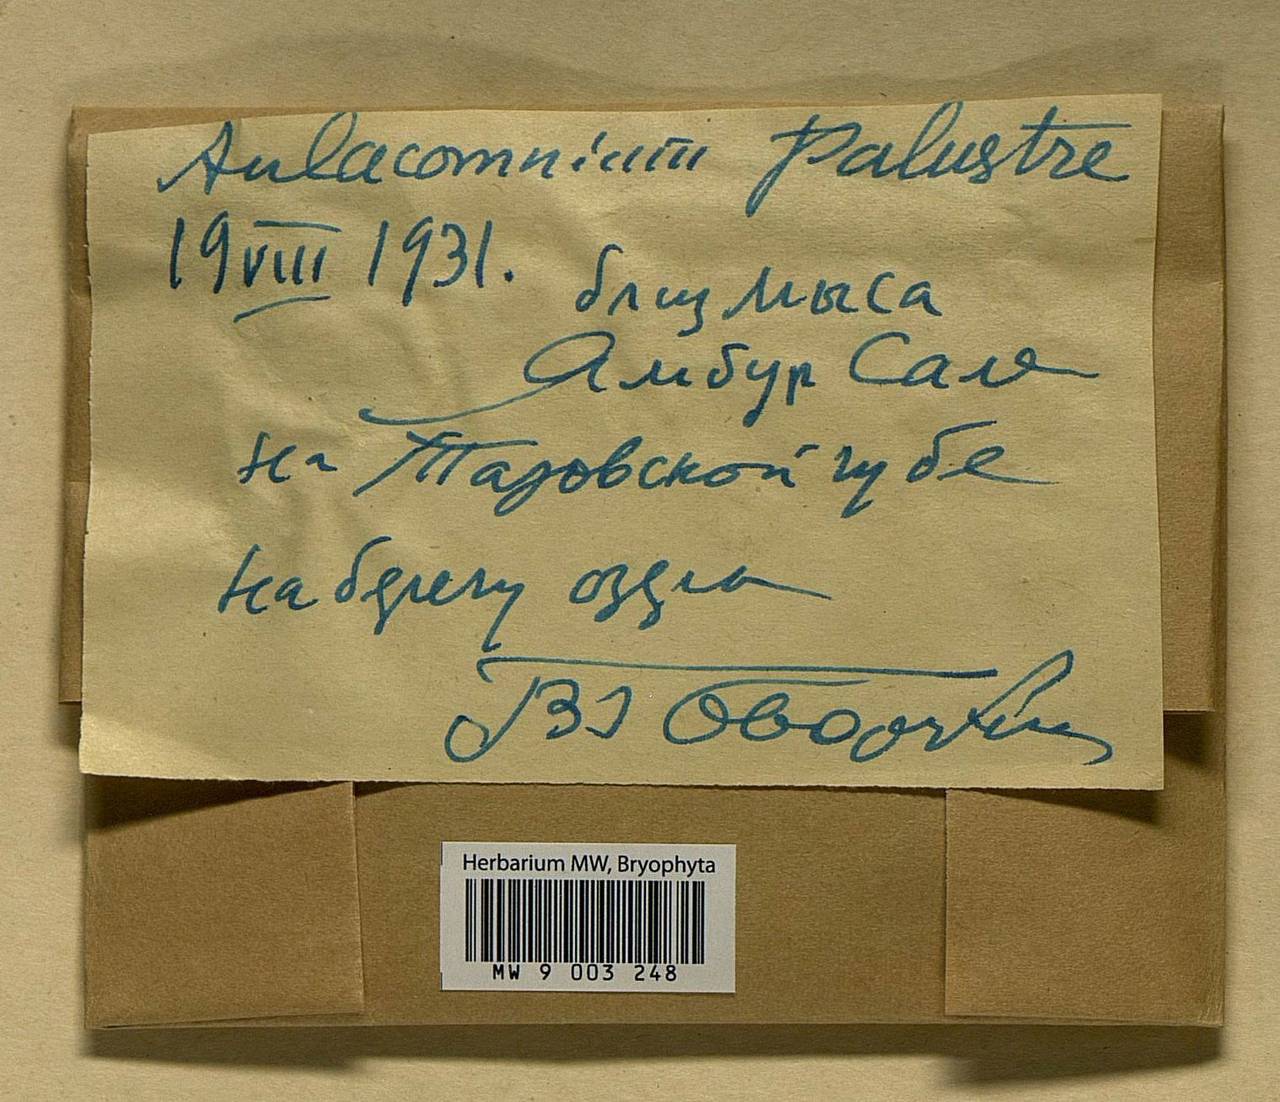 Aulacomnium Palustre
19 VIII 1931.
близ мыса
Ямбур Сале
на Тазовской губе
на берегу озера
Herbarium MW, Bryophyta
MW 9 003 248